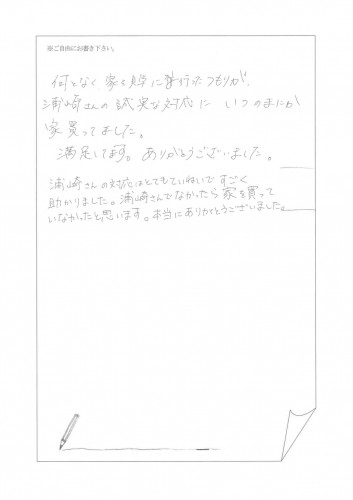 ※ご自由にお書き下さい。
何となく、家を見学に行ったつもりが、
浦崎さんの誠実な対応に いつのまにか
家買ってました。
満足してます。ありがとうございました。
浦崎さんの対応はとてもていねいで すごく
助かりました。浦崎さんでなかったら家を買って
いなかったと思います。本当にありがとうございました。